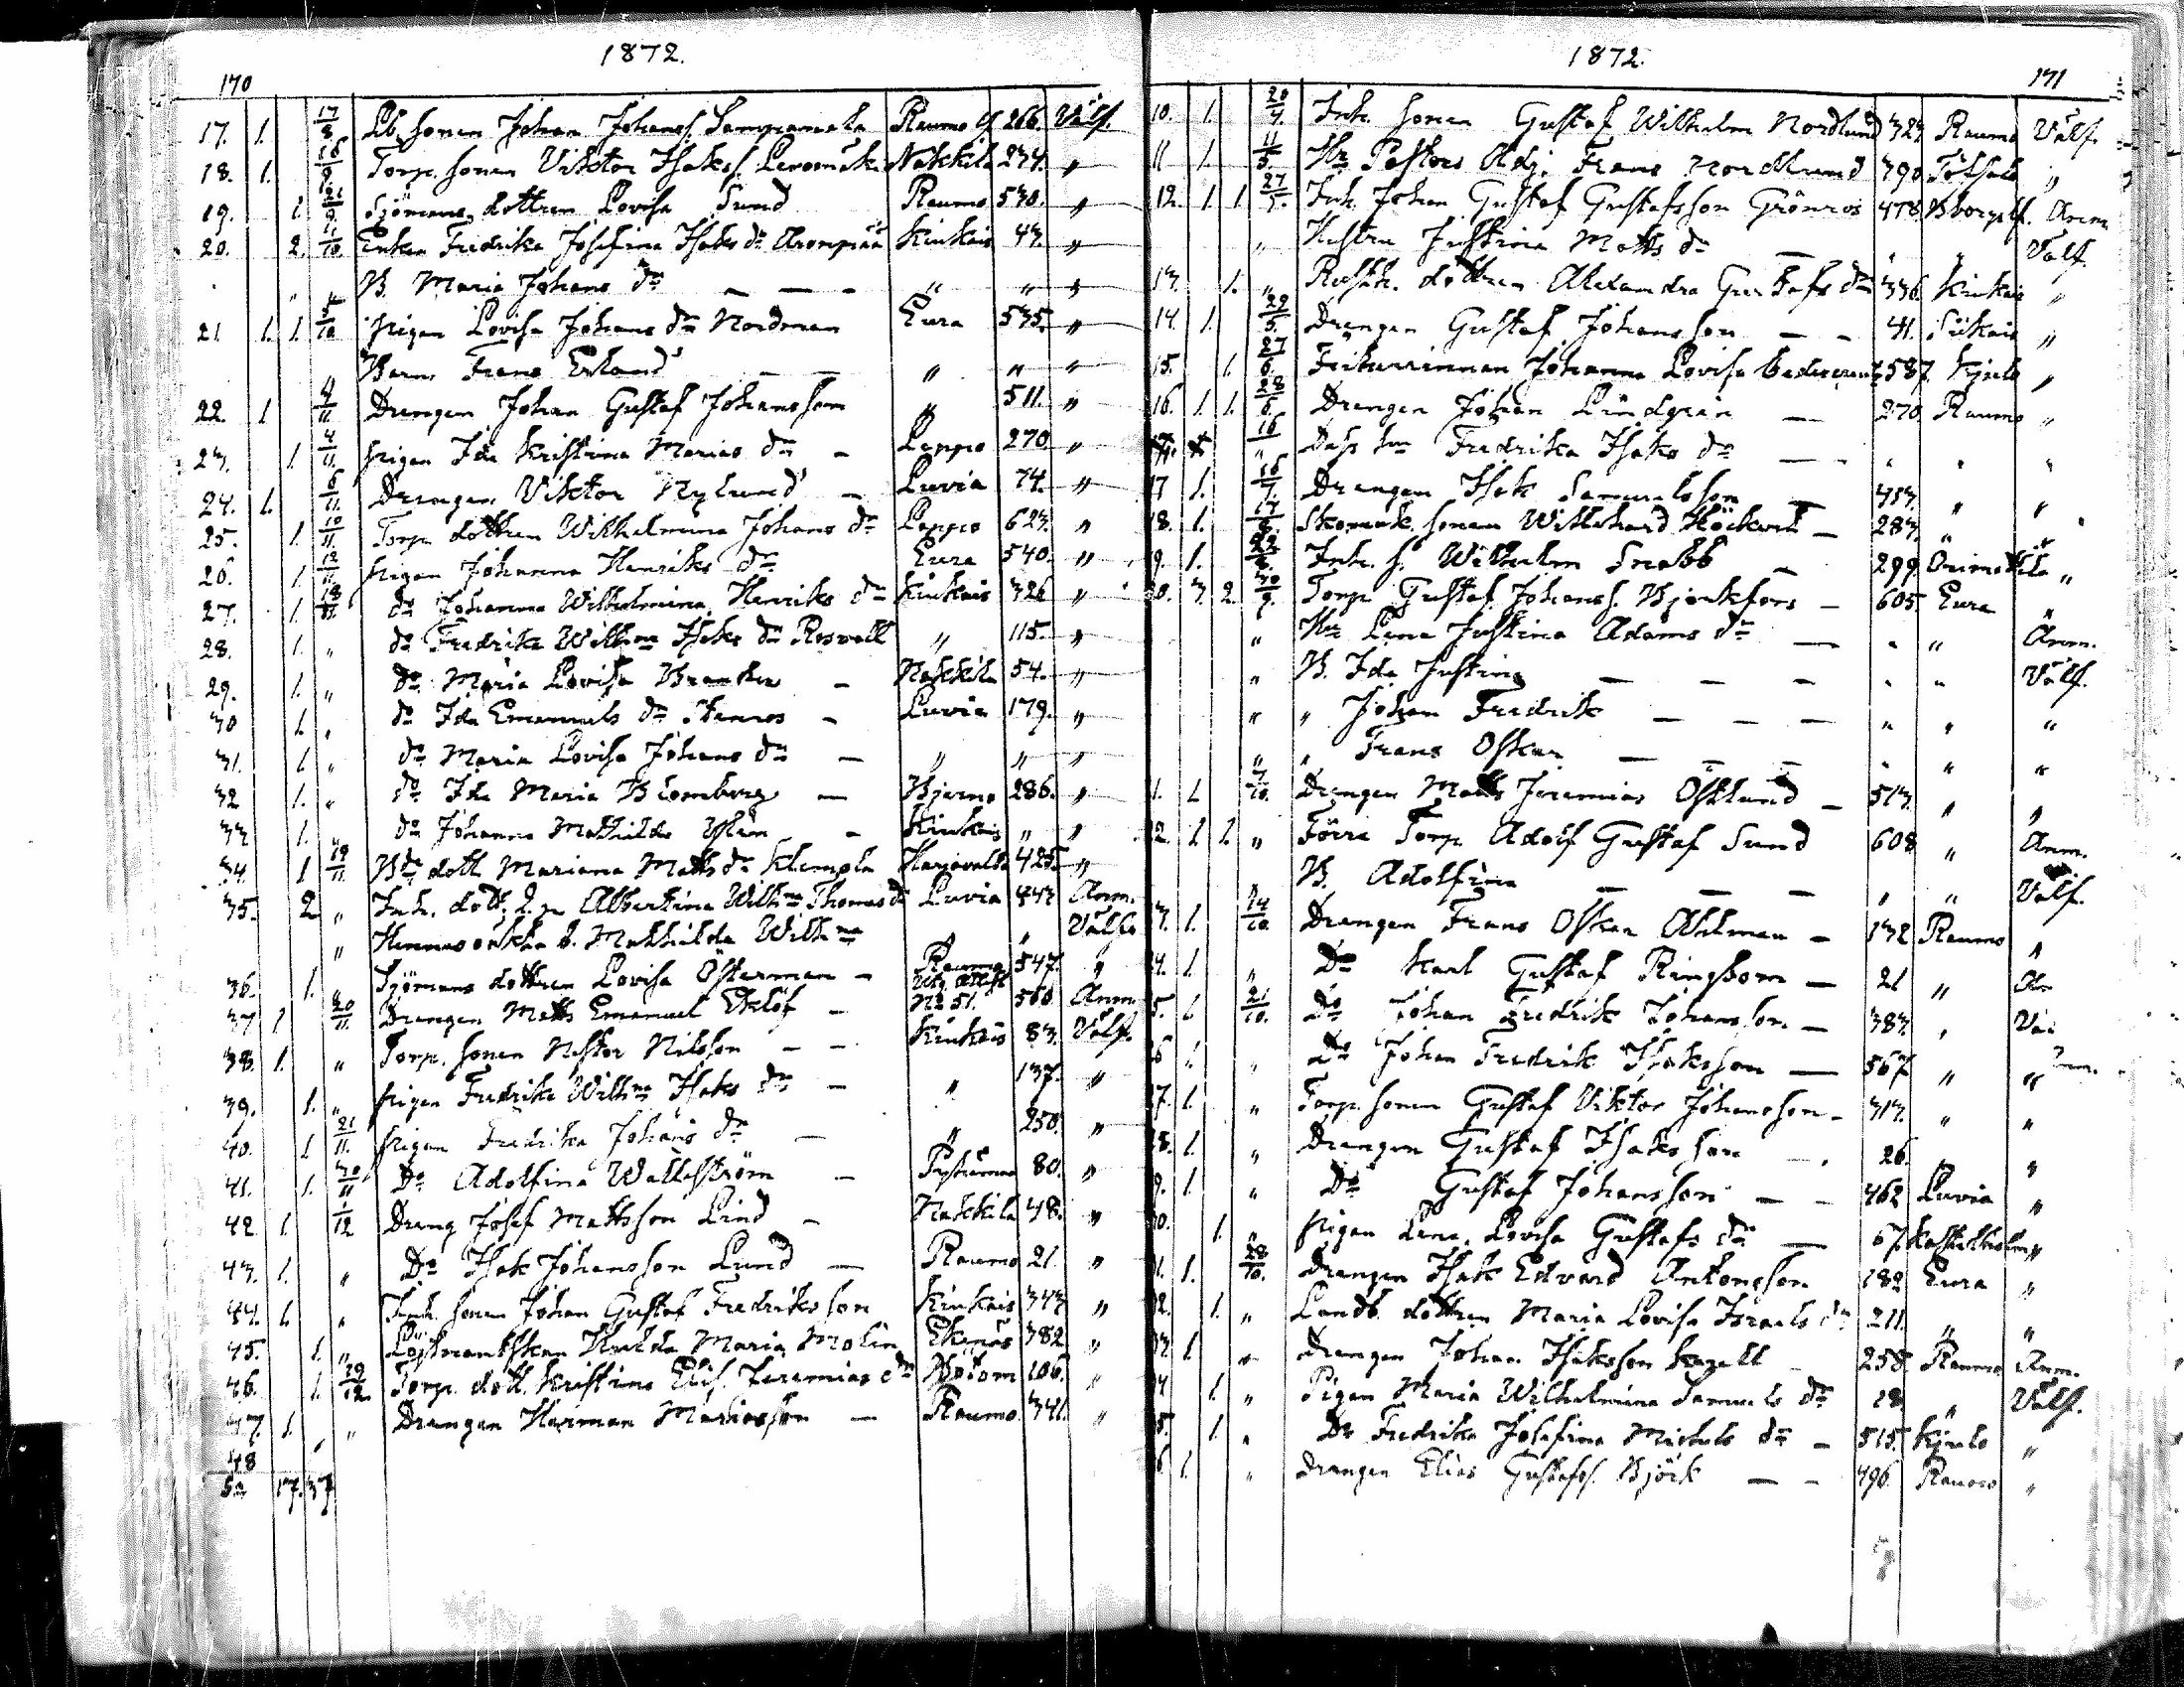 1872.
170
17. 1. 17/8 Lb. sonen Johan Johans s. Sampanmala Raumo lf 266. Välf.
18. 1. 16/9 Torp. sonen Viktor Isakss. Nakkila 274. "
19. 1. 21/9. Sjömans dottren Lovisa Sund Raumo 530. "
20. 2. 1/10. Enkan Fredrika Josefina Isaks dr Arompää Kiukais 43. "
" B. Maria Johans dr — — — " " "
21. 1. 1. 5/10 Pigan Lovisa Johans dr Nordman Eura 535. "
Barn Frans Erland — — " " "
22. 1 4/11. Drengen Johan Gustaf Johansson " 511. "
23. 1. 4/11. Pigan Ida Kristina Marias dr — Lappo 270 "
24. 1. 6/11. Drengen Viktor Nylund — Luvia 74. "
25. 1. 10/11. Torp. dottren Wilhelmina Johans dr Lappo 623. "
26. 1. 12/11. Pigan Johanna Henriks dr Eura 540. "
27. 1. 18/11. do Johanna Wilhelmina Henriks dr Kiukais 326 "
28. 1. " do Fredrika Wilhna Isaks dr Roswall " 115. "
29. 1. " do Maria Lovisa Branken — Nakkila 54. "
30 1. " do Ida Emanuels dr Stenros — Luvia 179. "
31. 1. " do Maria Lovisa Johans dr — " " "
32 1. " do Ida Maria Blomberg — Bjerno 286. "
33 1. " do Johanna Mathilda — Kiukais " "
34. 1 19/11. Bde dott Mariana Matts dr Klempla Harjavalta 425. "
35. 2 " Inh. dott. Albertina Wilhna Thomas dr Luvia 443 Anm.
" Hennes oäkta b. Mathilda Wilhna " " Välf.
36. 1. " Sjömans dottren Lovisa Österman — Raumo 547. "
37 1 20/11. Drengen Matts Emanuel Eklöf — Utg. attest No 51. 560 Anm.
38. 1. " Torp. sonen Nestor Nilsson — — Kiukais 83. Välf.
39. 1. " Pigan Fredrika Wilhna Isaks dr — " 137. "
40. 1 21/11. Pigan Fredrika Johans dr — " 250. "
41. 1. 30/11 Do Adolfina Wallström — Pyhämaa 80. "
42 1. 1/12 Dreng Josef Mattsson Lind — Nakkila 48. "
43. 1. " Do Isak Johansson Lund — Raumo 21. "
44. 1. " Inh. sonen Johan Gustaf Fredriksson Kiukais 343 "
45. 1. " Hulda Maria Molin Ekenäs 382 "
46. 1. 29/12. Torp. dott. Kristina Elis. Jeremias dr 106. "
47. 1. " Drengen Herman Mariasson — Raumo 341. "
48
Sa 17. 37
1872.
171
10. 1. 20/4. Inh. sonen Gustaf Wilhelm Nordlund 323 Raumo Välf.
11 1. 11/5. Hr Pastors Adj. Frans Nordlund 390 "
12. 1. 1. 27/5. Inh. Johan Gustaf Gustafsson Grönros 478. Björneb lf. Anm.
" Hustru Justina Matts dr — " " Välf.
13. 1. " Rusth. dottren Alexandra Gustafs dr 336. Kiukais "
14. 1. 29/5. Drengen Gustaf Johansson — — 41. Siikais "
15. 1. 27/6. Johanna Lovisa 587. Kjulo "
16. 1. 1. 28/6. Drengen Johan Lindgren — 270 Raumo "
" Dess hu Fredrika Isaks dr — " " "
17 1. 16/7. Drengen Isak Samuelsson — " "
18. 1. 17/8. Skomak. sonen Wilhehard Höckert — 283. " "
19. 1. 22/8. Inh. s. Wilhelm Snabb — 299 Orimattila "
20. 3. 2. 30/9. Torp. Gustaf Johanss. Bjorkfors — 605 Eura "
" Hu Lena Justina Adams dr — " " Anm.
" B. Ida Justina — — — " " Välf.
" " Johan Fredrik — — — " " "
" " Frans Oskar — — — " " "
1. 1. 7/10. Drengen Matts Jeremias Östlund — 513. " "
2. 1. 1. " Förra Torp. Adolf Gustaf Sund 608 " Anm.
B. Adolfina — — — " " Välf.
3. 1. 14/10. Drengen Frans Oskar Ahlman — 132 Raumo "
4. 1. " Do Karl Gustaf Ringbom — 21 " An
5. 1. 21/10. Do Johan Fredrik Johansson — 383. " Vä
6 1. " Do Johan Fredrik Isaksson — 567 " "
27. 1. " Torp. sonen Gustaf Viktor Johansson — 313. " "
28. 1. " Drengen Gustaf Isaksson — 26. " "
9. 1. " Do Gustaf Johansson — — 462 Luvia "
0. 1. " Pigan Lena Lovisa Gustafs dr — 67. "
1. 1. 28/10. Drengen Isak Edvard Antonsson 182 Eura "
2. 1. " Landb. dottren Maria Lovisa Israels dr 211. " "
33. 1. " Drengen Johan Isaksson — 258. Raumo Anm.
4 1. " Pigan Maria Wilhelmina Samuels dr 28 " Välf.
5. 1. " Do Fredrika Josefina Michels dr — 515. Kjulo "
6. 1. " Drengen Elias Gustafss. Björk — — 496. Raumo "